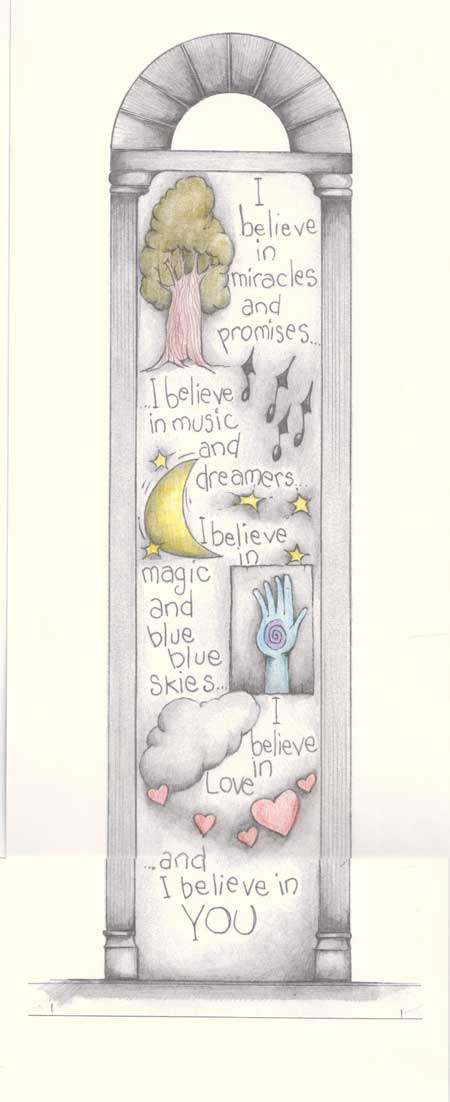 I
believe
in
miracles
and
promises...
...I believe
in music
and
dreamers...
I believe
in
magic
and
blue
blue
skies...
I
believe
in
Love
...and
I believe in
YOU